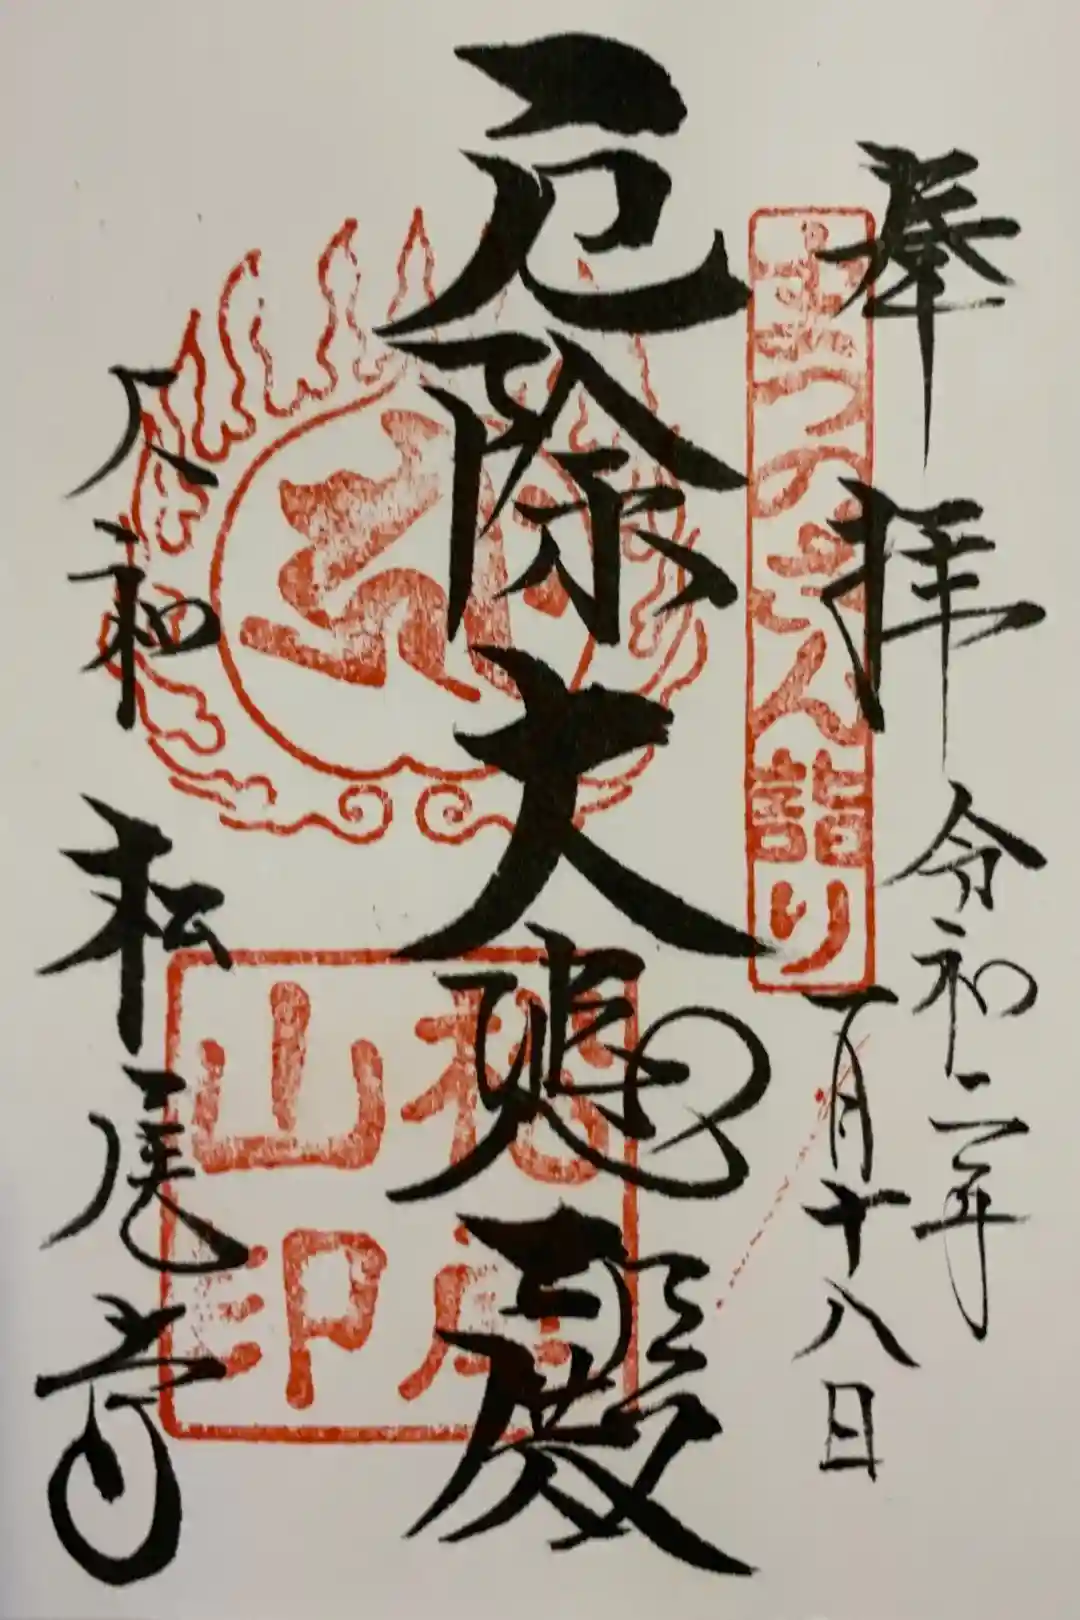 奉拝
令和二年
一月十八日
まつのさん詣り
厄除大悲殿
松尾山印
大和
松尾寺